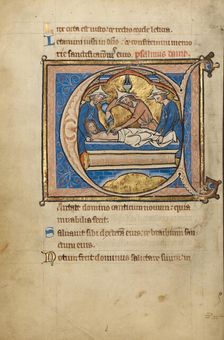 orta est iusto et rectis corde leticia.
Letamini iusti in dno et confitemini memo
rie sanctificationis eius. psalmus dauid.
C
antate domino canticum nouum quia
mirabilia fecit.
Saluauit sibi dextera eius et brachium san
ctum eius.
Notum fecit dominus salutare suum in